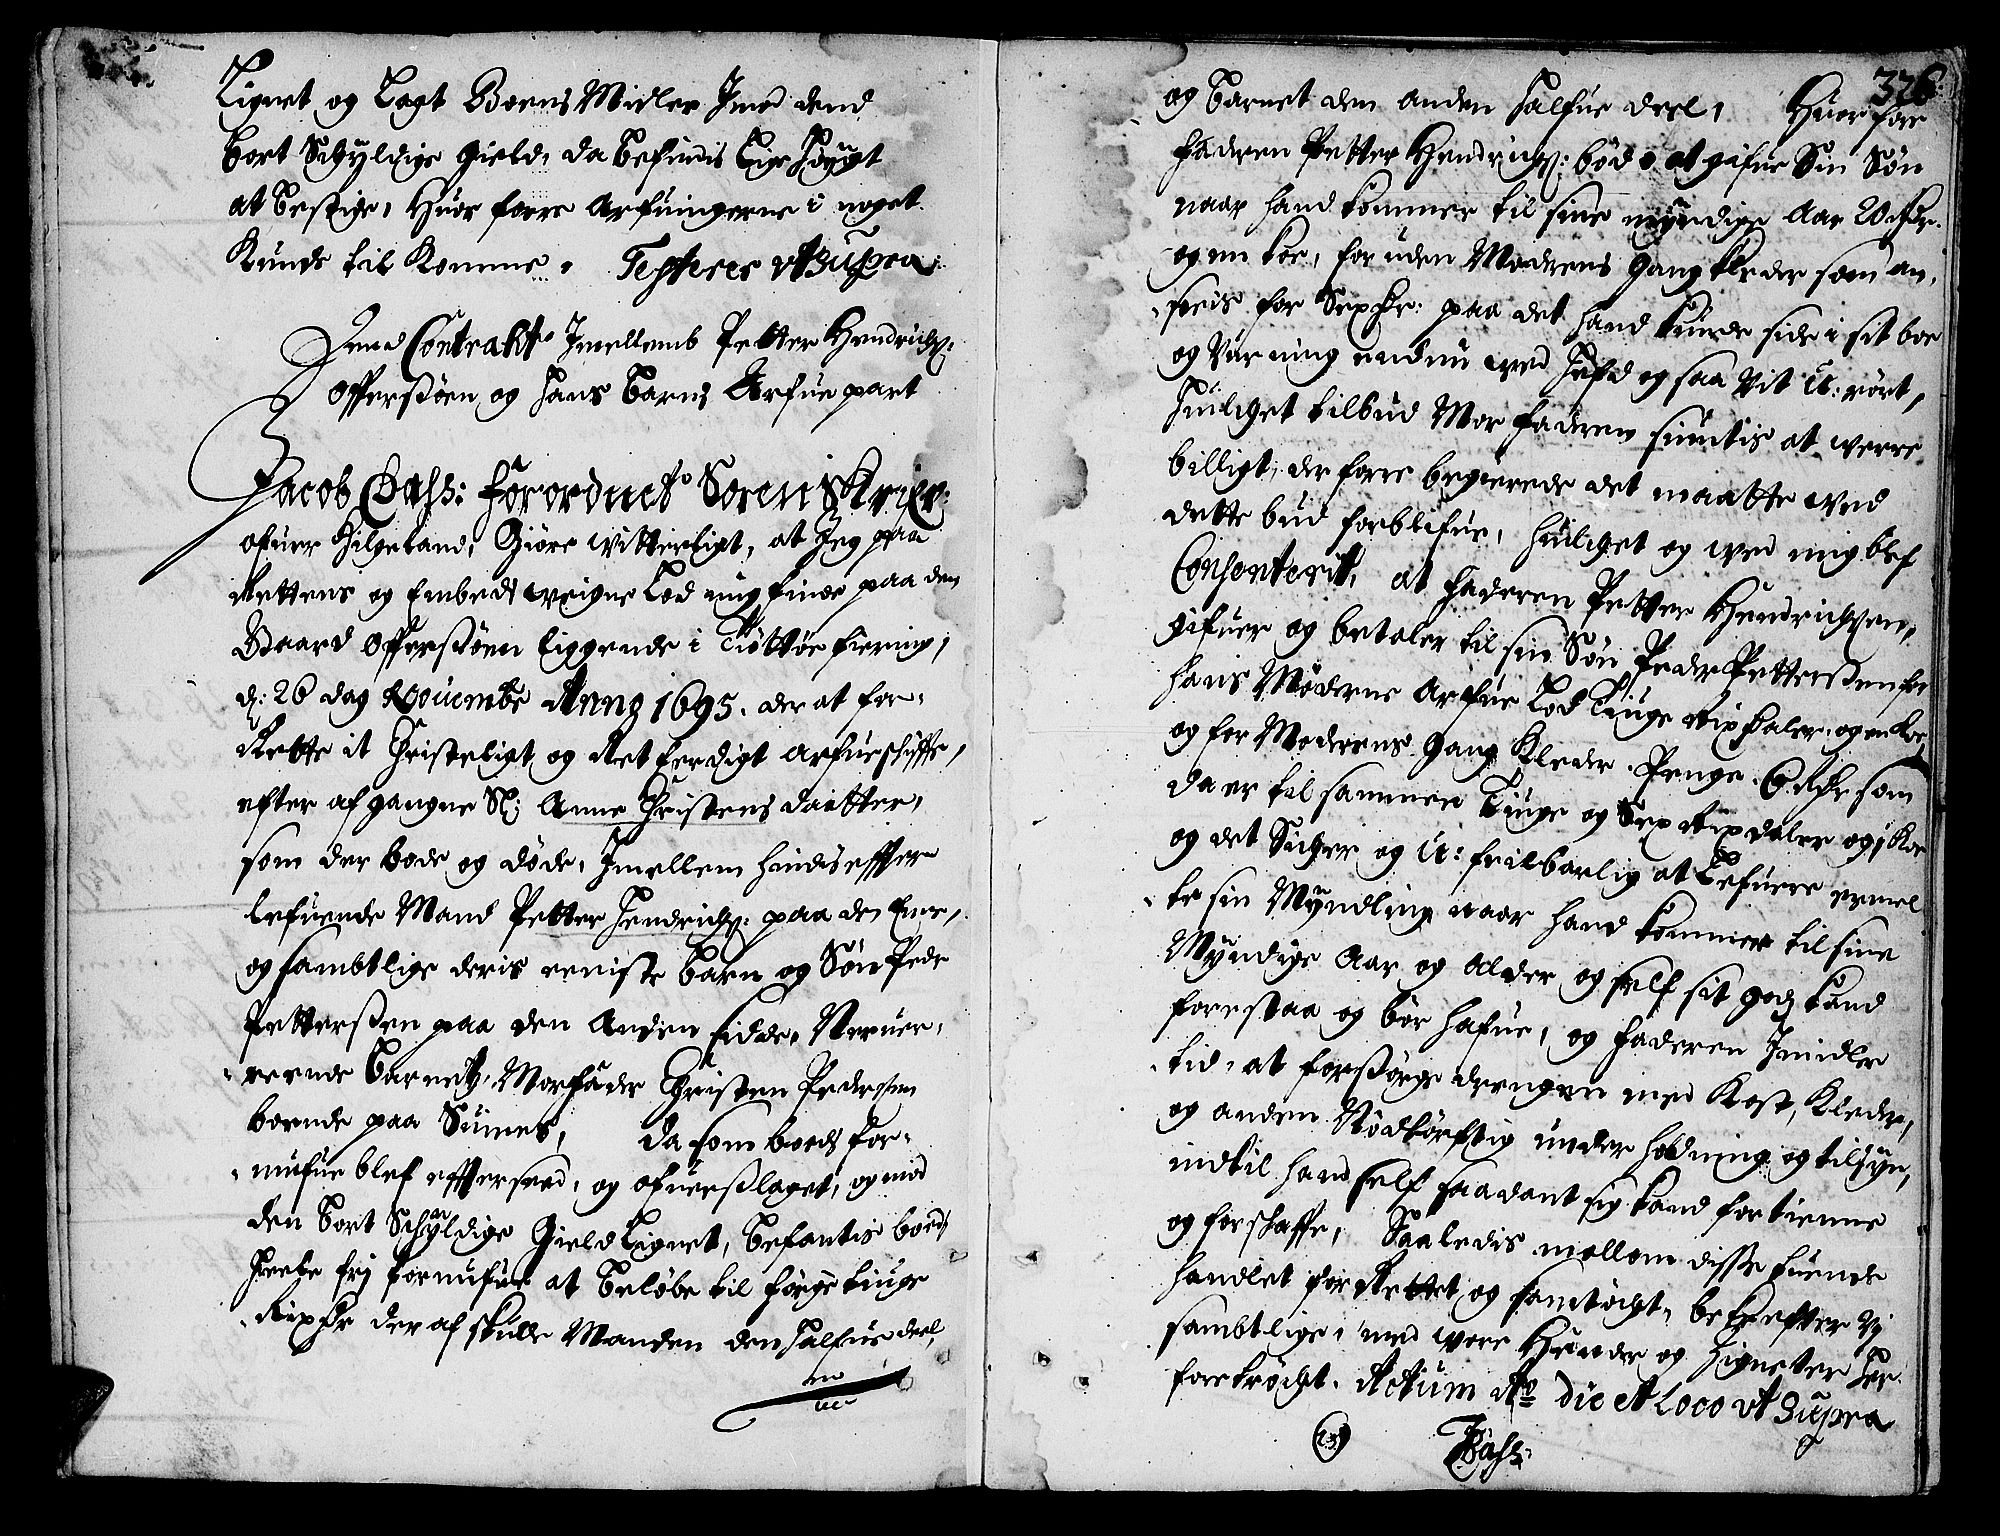 Lignet og Lagt Boens Midler Imod dend
bort Schyldige Gield, da befindis Lige høygt
at bestige, Huor forre Arfuingerne i noget
Kunde til Komme. Testerer ut Supra
Dend Contrakt Imellemb Petter Hendrichs:
Offersøen og hans barns Arfue part
Jacob Bass: forordnet Sorenskrifr:
ofuer Helgeland, Giøre witterligt, at Jeg paa
Rettens og Embeds weigne Lod mig finde paa den
Gaard Offersøen liggende i Tiøttøe fiering,
d: 26 dag Nouembr Anno 1695. der at for-
Rette it Christeligt og Retferdigt arfueschiffte,
efter afgangne Sl: Anne Christens daatter,
som der bode og døde, Imellem hindis effter
lefuende Mand Petter Hendrichs: paa den Ene,
og sambtlige deris eeniste barn og Søn Peder
Pettersen paa den Anden side, Neruer-
rende barnets Morfader Christen Pedersen
boende paa Sümnes, da som boeds for-
mufue blef effterseed, og ofuerslaget, og mod
den bort Schyldige Gield Lignet, befantis boeds
Heele frj formufue at beløbe til førge tiuge
Rixdr der af skulle Manden den halfue deel,
og barnet den anden halfue deel, Huorfore
326
faderen Petter Hendrichs: bød at gifue Sin Søn
naar hand kommer til sine myndige Aar 20 rdr.
og en koe, foruden Moderens Gangkleder som an-
seeis for Sex dr: paa det hand kunde side i sit boe
og Næring endnu wed Hefd og saa vit u: rørt,
Huilchet tilbud Mor faderen siuntis at werre
billigt, derforre begierede det maatte wed
dette bud forblifue, huilchet og wed mig blef
Consenterit, at faderen Petter Hendrichsen,
gifuer og betaler til sin Søn Peder Pettersen for
hans Møderne Arfue Lod Tiuge Rixdaler og en Koe,
og for Moderens Gang Kleder Penge 6 Rdr som
da er til sammen Tiuge og Sex Rixdaler og 1 Koe
og det Sicher og u: feilbarlig at Lefuere ermel
te sin Myndling naar hand kommer til sine
Myndige Aar og Alder og self sit godz kand
forestaa og bør hafue, og faderen Imidler
tid at forsørge drengen med Kost, Kleder,
og anden Nødtørftig underholdning og tilsyn,
indtil hand self saadant sig kand fortienne
og forschaffe, Saaledis mellem disse tuende
handlet for Rettet og samtøcht, bekrefter Wj
sambtlige, med wore Hender og Zigneter her
foretrøcht. Actum Ao die et Loco ut Supra
JBass: